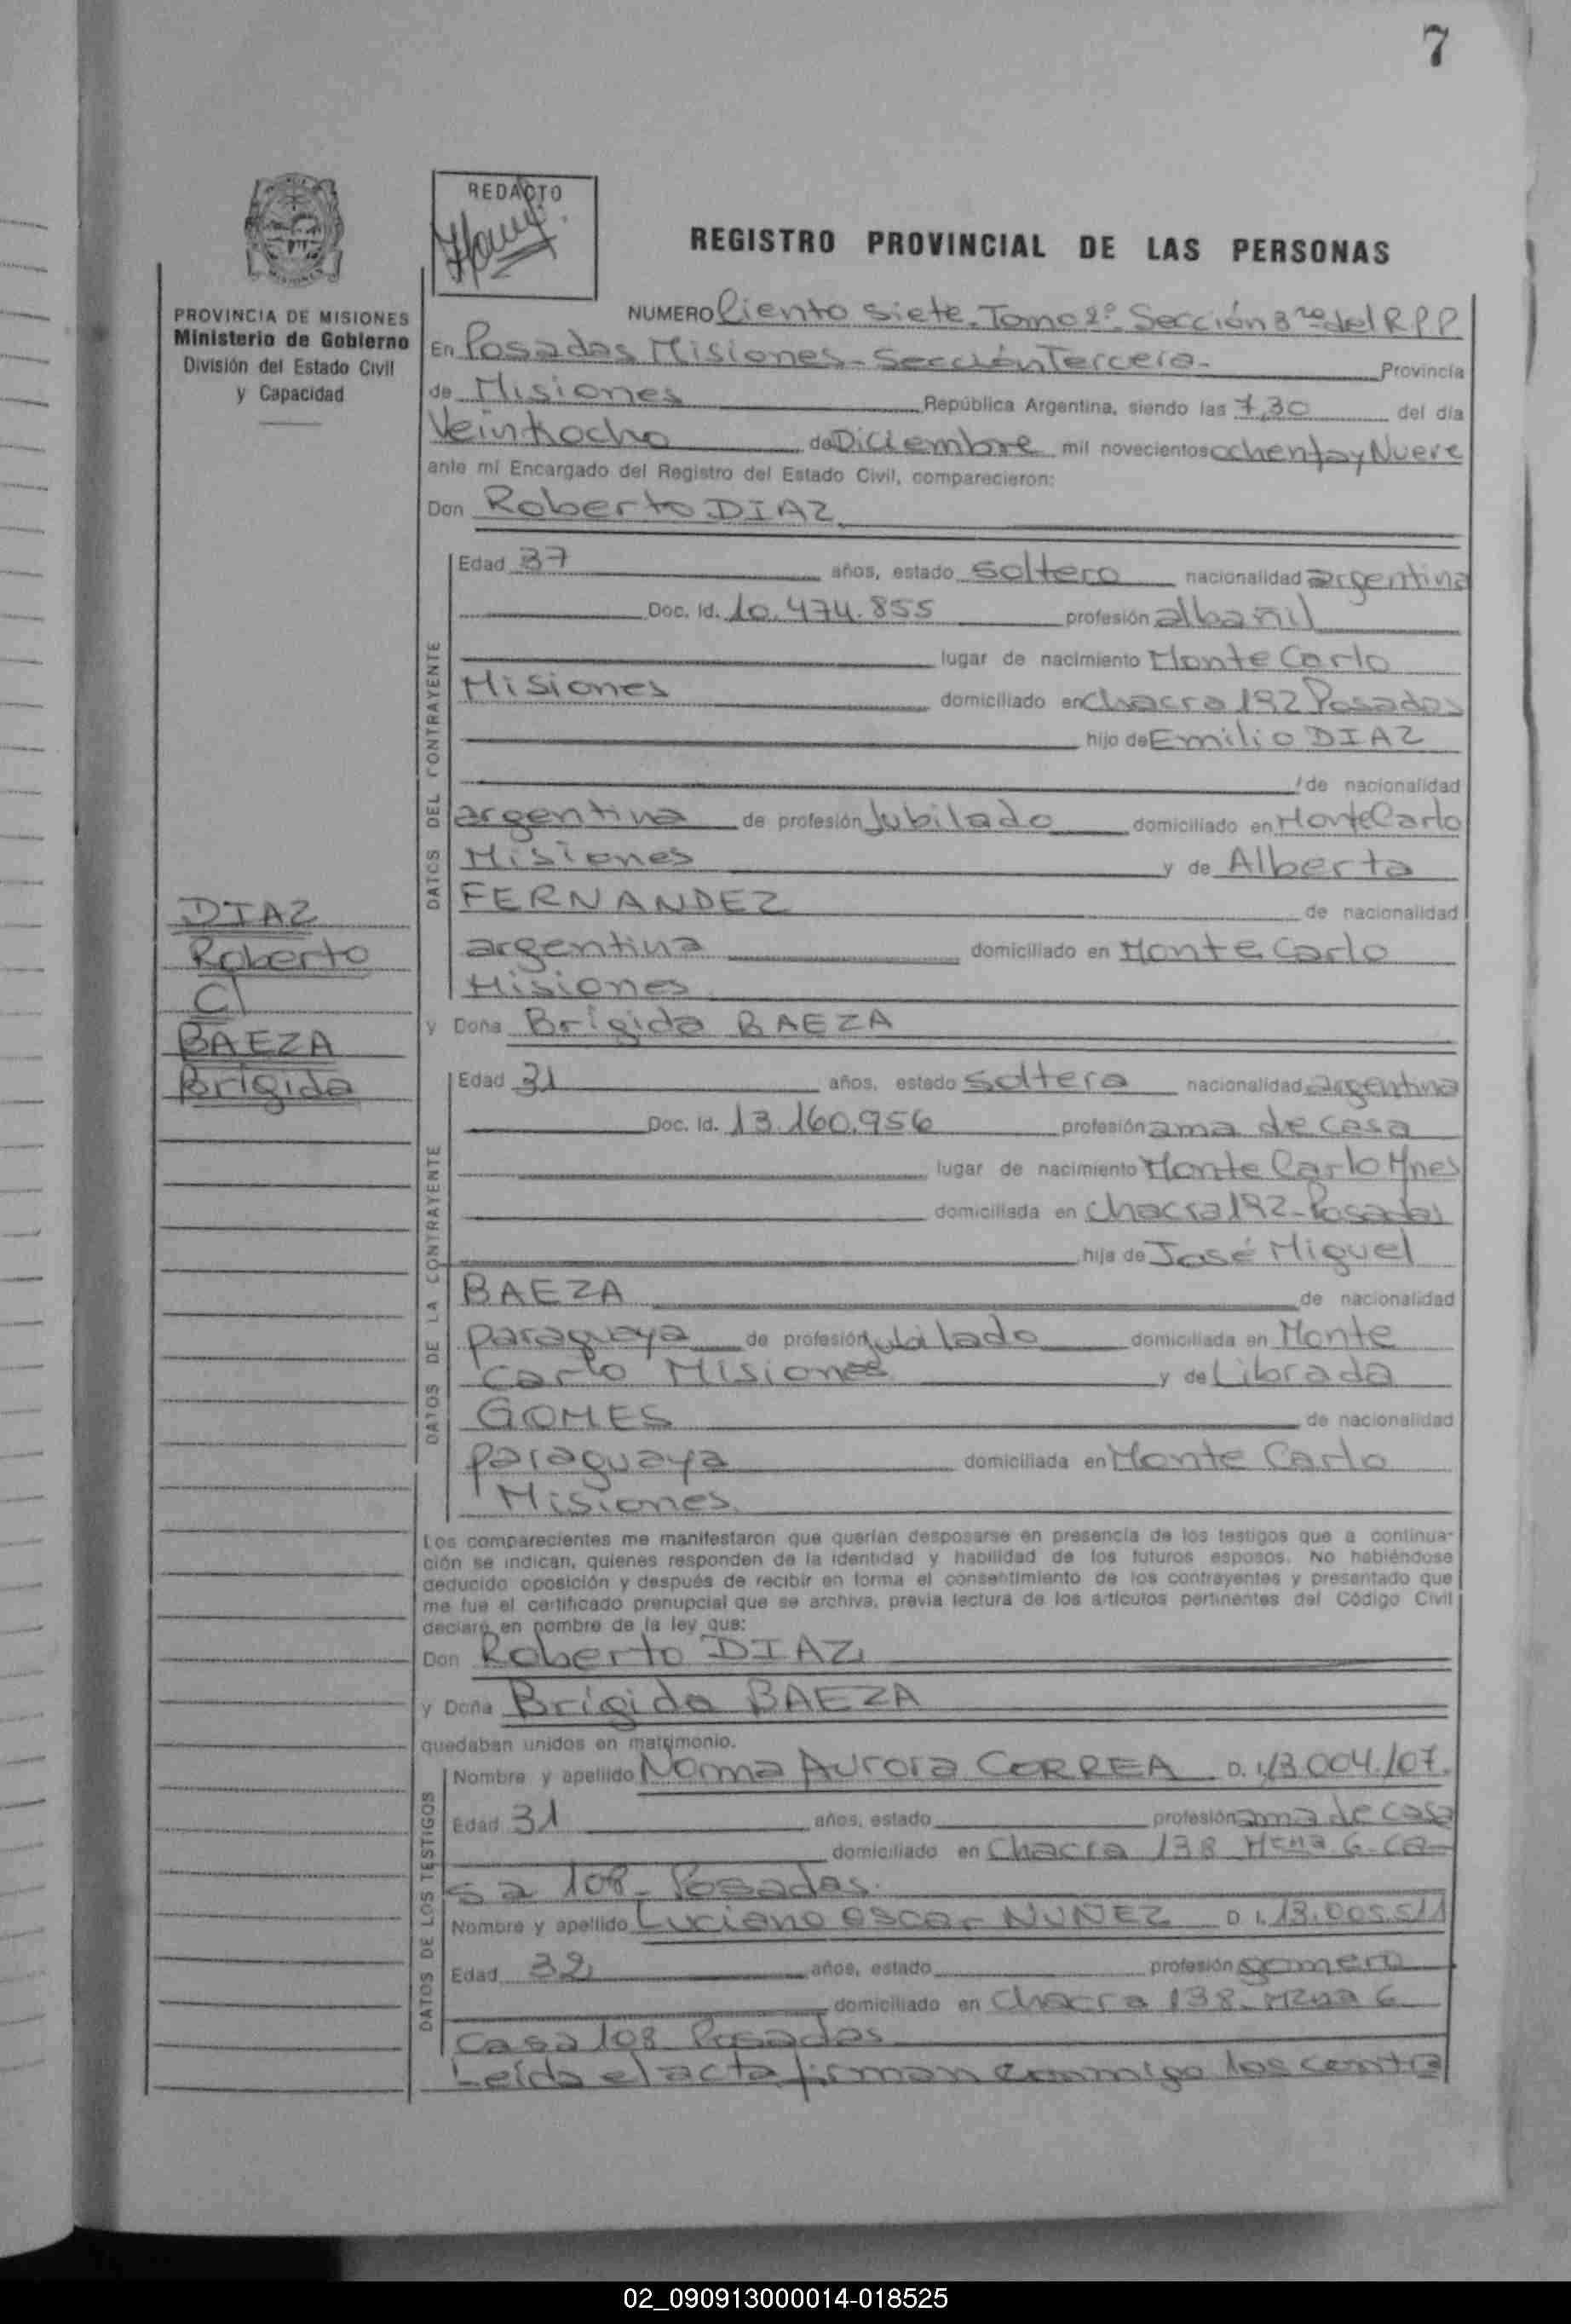 7
REDACTO
REGISTRO PROVINCIAL DE LAS PERSONAS
PROVINCIA DE MISIONES
Ministerio de Gobierno
División del Estado Civil
y Capacidad
NUMERO Ciento siete. Tomo 2º Sección 3ra del R P P
En Posadas Misiones - Sección Tercera - Provincia
de Misiones República Argentina, siendo las 7,30 del día
Veintiocho de Diciembre mil novecientos ochenta y Nueve
ante mí Encargado del Registro del Estado Civil, comparecieron:
Don Roberto DIAZ
DATOS DEL CONTRAYENTE
Edad 37 años, estado soltero nacionalidad argentina
Doc. Id. 10.474.855 profesión albañil
lugar de nacimiento Monte Carlo
Misiones domiciliado en chacra 192 Posadas
hijo de Emilio DIAZ
de nacionalidad
argentina de profesión Jubilado domiciliado en Monte Carlo
Misiones y de Alberta
FERNANDEZ de nacionalidad
argentina domiciliado en Monte Carlo
Misiones
DIAZ
Roberto
C/
BAEZA
Brígida
y Doña Brígida BAEZA
DATOS DE LA CONTRAYENTE
Edad 31 años, estado soltera nacionalidad argentina
Doc. Id. 13.160.956 profesión ama de casa
lugar de nacimiento Monte Carlo Mnes
domiciliada en chacra 192 - Posadas
hija de José Miguel
BAEZA de nacionalidad
paraguaya de profesión jubilado domiciliada en Monte
Carlo Misiones y de Librada
GOMES de nacionalidad
paraguaya domiciliada en Monte Carlo
Misiones.
Los comparecientes me manifestaron que querían desposarse en presencia de los testigos que a continua-
ción se indican, quienes responden de la identidad y habilidad de los futuros esposos. No habiéndose
deducido oposición y después de recibir en forma el consentimiento de los contrayentes y presentado que
me fue el certificado prenupcial que se archiva, previa lectura de los artículos pertinentes del Código Civil
declaré en nombre de la ley que:
Don Roberto DIAZ
y Doña Brígida BAEZA
quedaban unidos en matrimonio.
DATOS DE LOS TESTIGOS
Nombre y apellido Norma Aurora CORREA D. I. 13.004.107.
Edad 31 años, estado profesión ama de casa
domiciliado en Chacra 138 Mzna 6 - ca-
sa 108 - Posadas.
Nombre y apellido Luciano Oscar NUÑEZ D I. 13.005.511
Edad 32 años, estado profesión gomero
domiciliado en Chacra 138 - Mzna 6
casa 108 Posadas
Leída el acta firman conmigo los contra
02_090913000014-018525